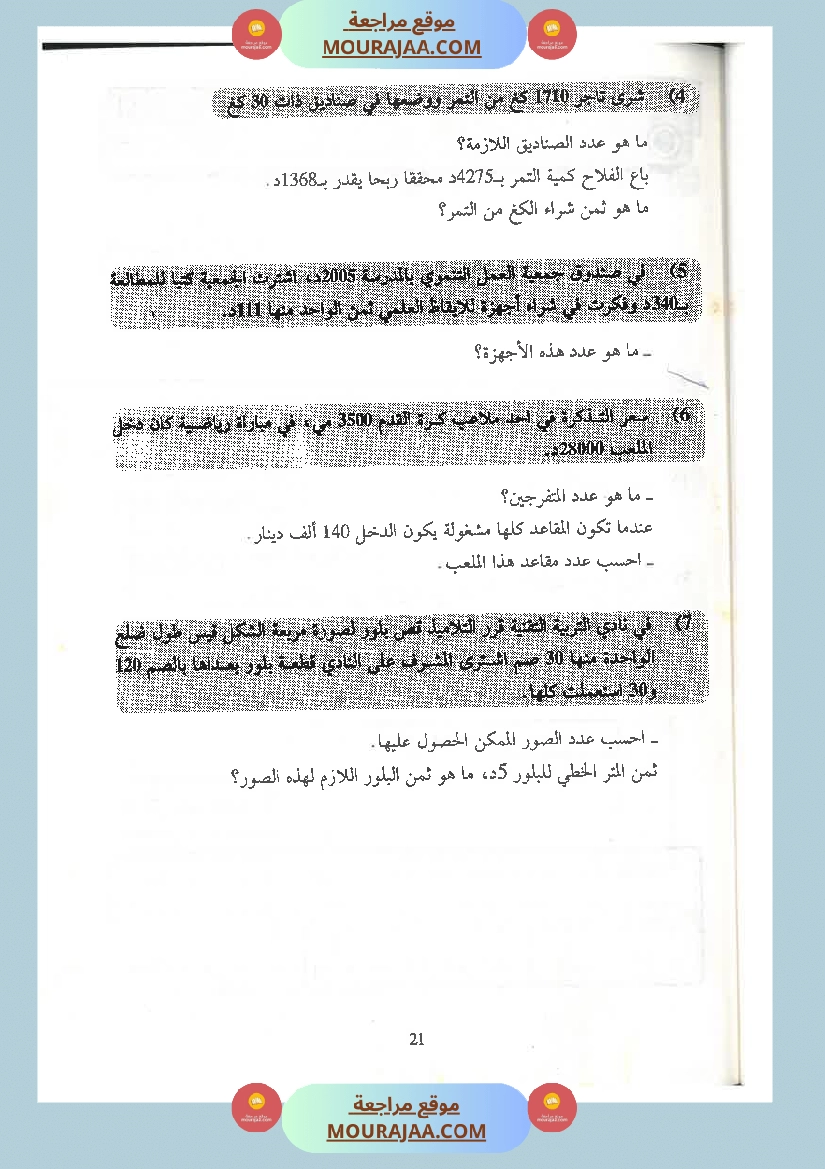 موقع مراجعة
MOURAJAA.COM
4) شرى تاجر 1710 كغ من التمر ووضعها في صناديق ذات 30 كغ
ما هو عدد الصناديق اللازمة؟
باع الفلاح كمية التمر بـ4275د محققا ربحا يقدر بـ1368د.
ما هو ثمن شراء الكغ من التمر؟
5) في صندوق جمعية العمل التنموي بالمدرسة 2005د، اشترت الجمعية كتبا للمطالعة
بـ340د وفكرت في شراء أجهزة للايقاظ العلمي ثمن الواحد منها 111د.
ـ ما هو عدد هذه الأجهزة؟
6) سعر التذكرة في احد ملاعب كرة القدم 3500 مي، في مباراة رياضية كان دخل
الملعب 28000د.
ـ ما هو عدد المتفرجين؟
عندما تكون المقاعد كلها مشغولة يكون الدخل 140 ألف دينار.
ـ احسب عدد مقاعد هذا الملعب.
7) في نادي التربية التقنية قرر التلاميذ قص بلور لصورة مربعة الشكل قيس طول ضلع
الواحدة منها 30 صم اشترى المشرف على النادي قطعة بلور بعداها بالصم 120
و30 استعملت كلها.
ـ احسب عدد الصور الممكن الحصول عليها.
ثمن المتر الخطي للبلور 5د، ما هو ثمن البلور اللازم لهذه الصور؟
21
موقع مراجعة
MOURAJAA.COM